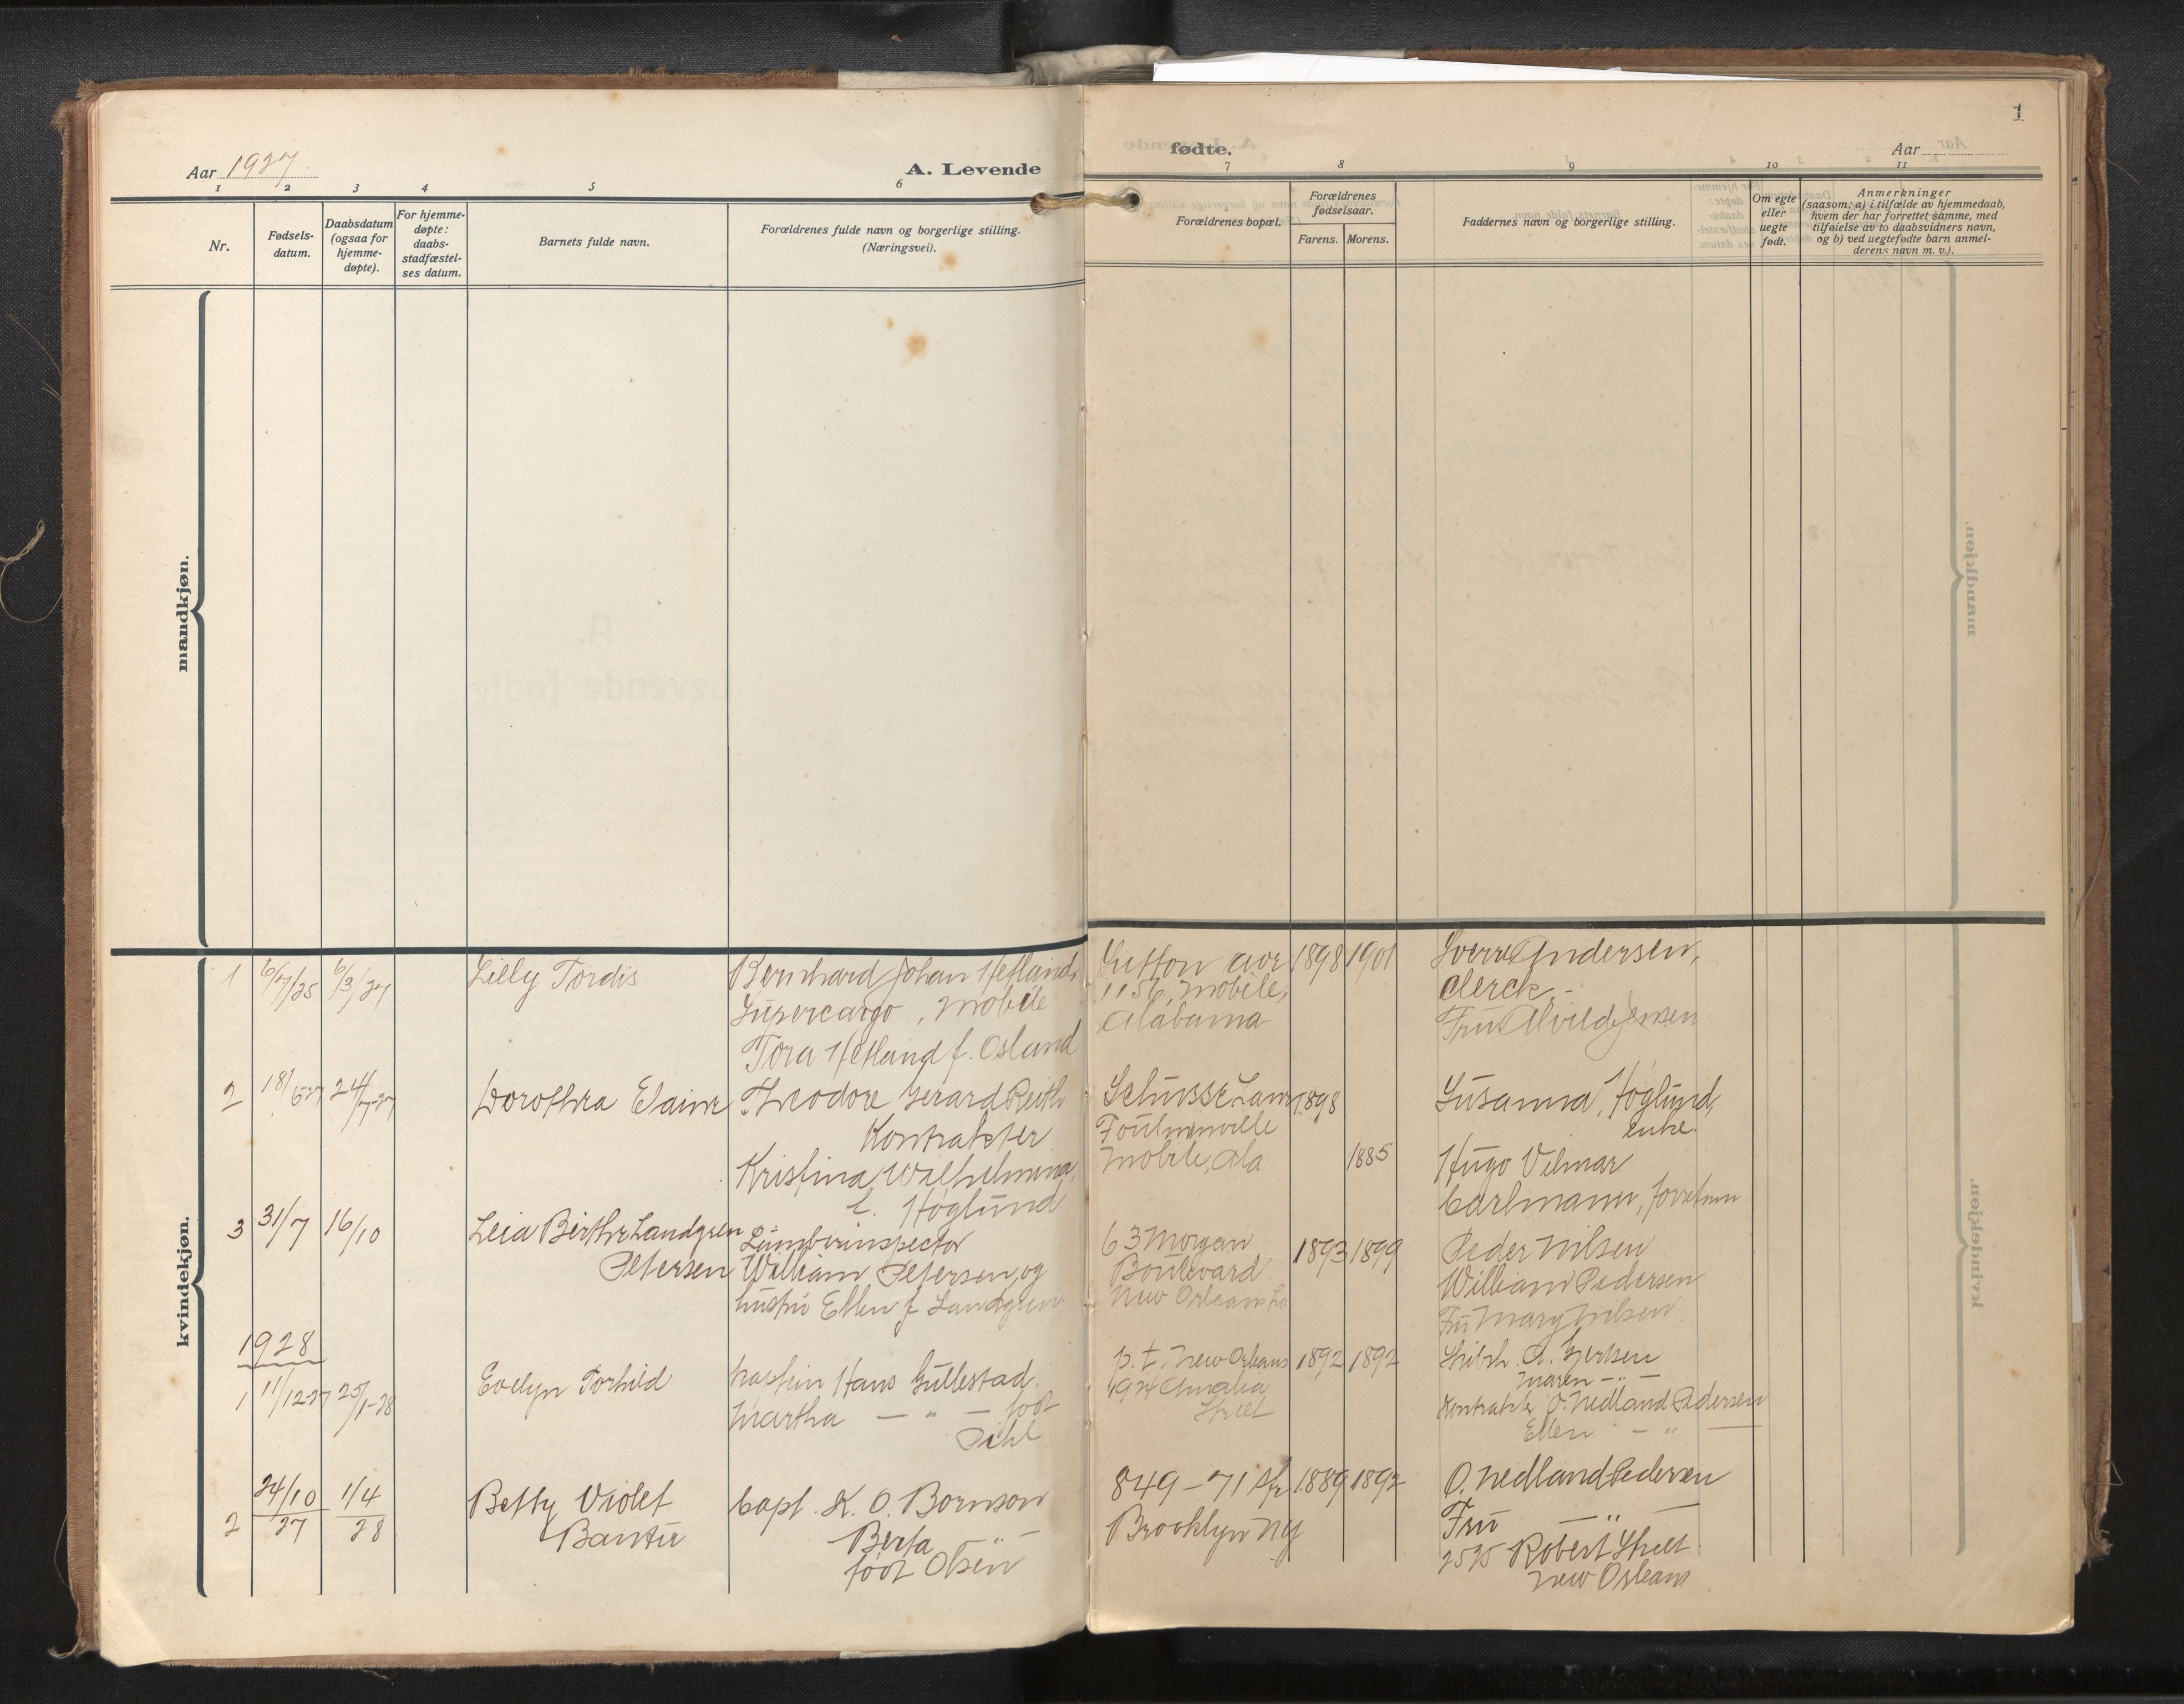 Aar 1927.
A. Levende
1 2 3 4 5 6
Nr.
Fødsels-
datum.
Daabsdatum
(ogsaa for
hjemme-
døpte).
For hjemme-
døpte:
daabs-
stadfæstel-
ses datum.
Barnets fulde navn.
Forældrenes fulde navn og borgerlige stilling.
(Næringsvei).
mandkjøn.
kvindekjøn.
1 6/7/25 6/3/27 Lilly Tordis Bernhard Johan Hetland,
Supercargo, Mobile
Tora Hetland f. Osland
2 18/6-27 24/7-27 Dorothea Elaine Theodore Gerard Reith
Kontraktør
Kristina Wilhelmina
f. Höglund
3 31/7 16/10 Leia Birthe Landgren Lumberinspector
Petersen William Petersen, og
hustru Ellen f. Landgren
1928
1 11/12-27 25/1-28 Evelyn Torhild Kaptein Hans Gullestad
Martha — " — født
Pihl
2 24/10 27 1/4 28 Betty Violet Capt. K. O. Bornson
Berta — " —
født Olsen
1
fødte.
Aar
7 8 9 10 11
Forældrenes bopæl.
Forældrenes
fødselsaar.
Farens. Morens.
Faddernes navn og borgerlige stilling.
Om egte
eller
uegte
født.
Anmerkninger
(saasom: a) i tilfælde av hjemmedaab,
hvem der har forrettet samme, med
tilføielse av to daabsvidners navn,
og b) ved uegtefødte barn anmel-
derens navn m. v.).
Sutton ave 1898 1901 Sverre Andersen,
1156, Mobile, Clerck.
Alabama Fru Alvilde Jensen
1898 Susanna Höglund,
enke.
Mobile, Ala 1885 Hugo Vilmar
Carlmann,
63 Morgan 1893 1899 Peder Nilsen
Boulevard William Pedersen
New Orleans La Fru Mary Nilsen
p.t. New Orleans 1892 1892 A. Gjertsen
Amalia Maren — " —
Street Kontraktør O. Nedland Pedersen
Ellen — " —
849 - 71 Str 1889 1892 O. Nedland Pedersen
Brooklyn NY Fru — " —
Robert Street
New Orleans